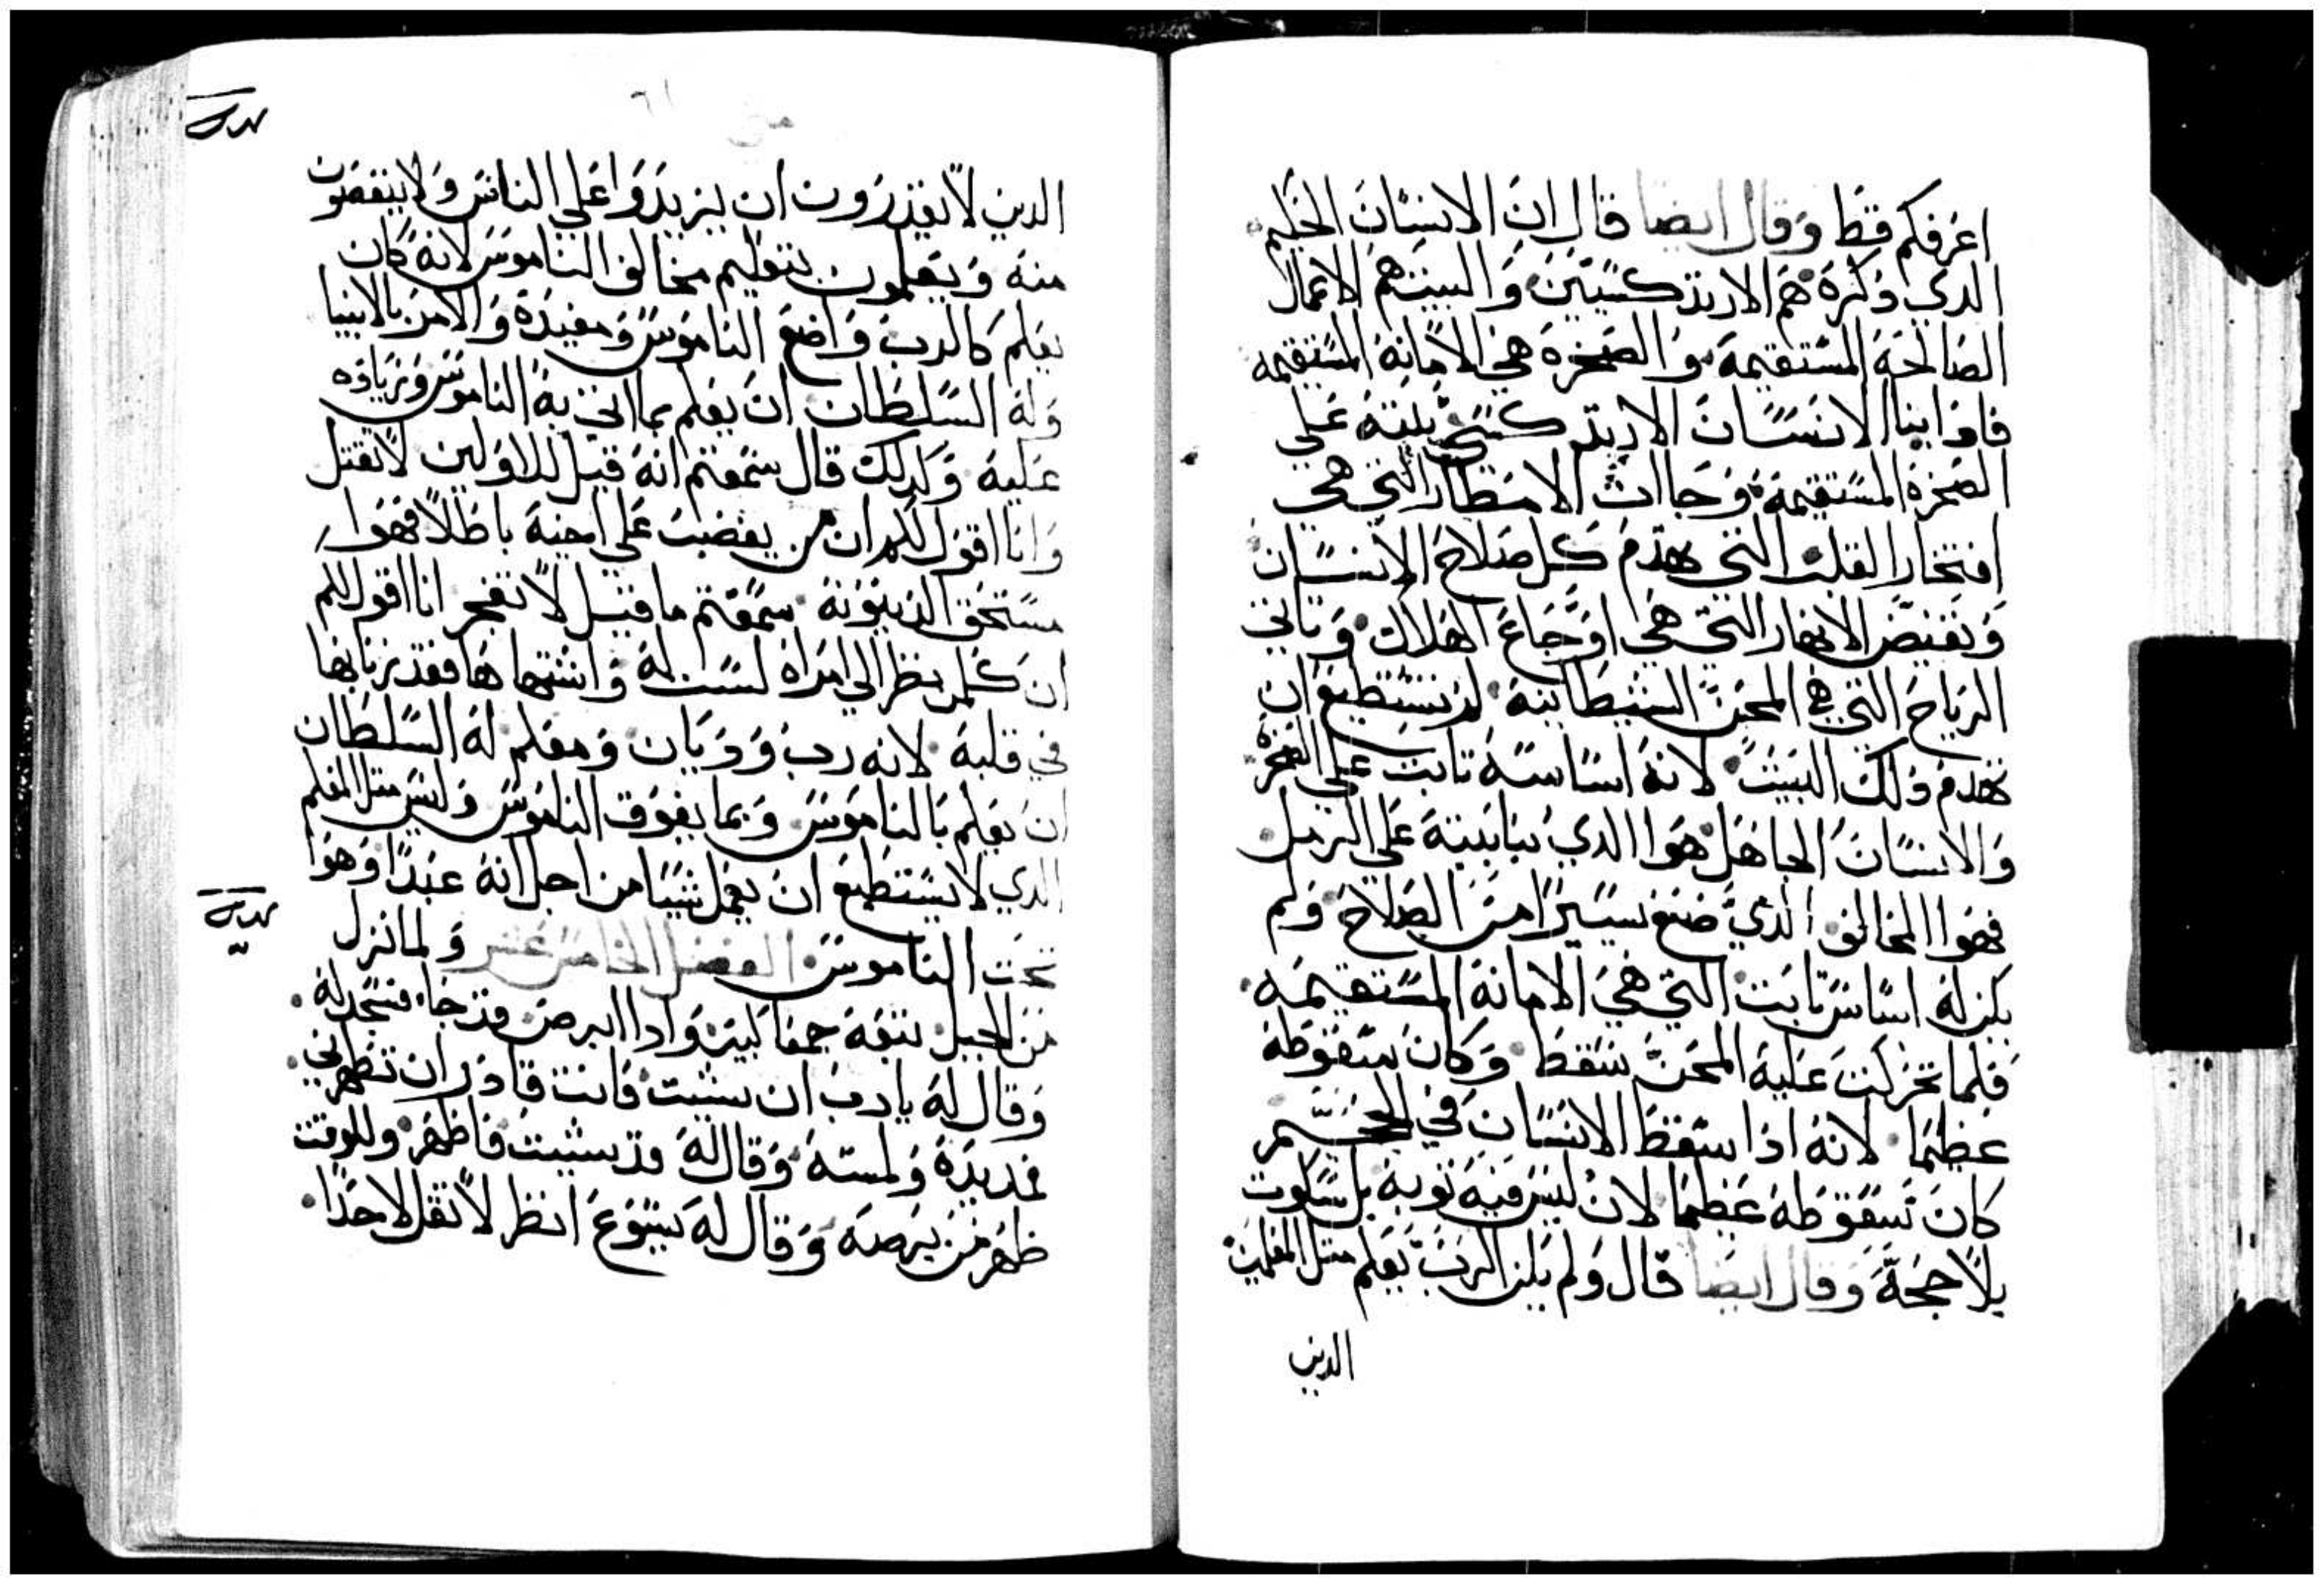 اعرفكم قط وقال ايضا قال ان الانسان الحليم
الدي دكره هم الارتدكسيين والبيت هم الاعمال
الصالحة المستقيمة والصخرة هي الامانة المستقيمة
فادا بنا الانسان الارتدكسي بيته علي
الصخرة المستقيمة وجاات الامطار التي هي
افتخار القلب التي تهدم كل صلاح الانسان
وتفيض الانهار التي هي اوجاع الهلاك وتاتي
الرياح التي هي المحن الشيطانية لم تستطيع ان
تهدم دلك البيت لانه اساسه تابت علي الصخرة
والانسان الجاهل هوا الدي بنا بيته علي الرمل
فهوا المخالف الدي صنع يسيرا من الصلاح ولم
يكن له اساس تابت التي هي الامانة المستقيمة
فلما تحركت عليه المحن سقط وكان سقوطه
عظيما لانه ادا سقط الانسان في الجحيم
كان سقوطه عظيما لان ليس فيه توبة بل سكوت
بلا حجة وقال ايضا قال ولم يكن الرب يعلم متل المعلمين
الدين
الدين لا يقدرون ان يزيدوا علي الناس ولا ينقصون
منه ويعلمون بتعليم مخالف الناموس لانه كان
يعلم كالرب واضع الناموس ومفيده والامر بالانبيا
وله السلطان ان يعلم بما اتي به الناموس وزياده
عليه وكدلك قال سمعتم انه قيل للاولين لا تقتل
وانا اقول لكم ان من يغضب علي اخيه باطلا فهوا
مستحق الدينونة سمعتم ما قيل لا تفجر انا اقول لكم
ان كلمن نظر الي امراه ليست له واشتهاها فقد زنا بها
في قلبه لانه رب وديان ومعلم له السلطان
ان يعلم بالناموس وبما يفوق الناموس وليس متل المعلم
الدي لا يستطيع ان يعمل شيا من اجل انه عبدا وهوا
تحت الناموس الفصل الخامس عشر ولما نزل
من الجبل تبعه جمعا كبير وادا ابرص قد جا فسجد له
وقال له يا رب ان شيت فانت قادر ان تطهرني
فمد يده ولمسه وقال له قد شيت فاطهر وللوقت
طهر من برصه وقال له يسوع انظر لا تقل لاحدا